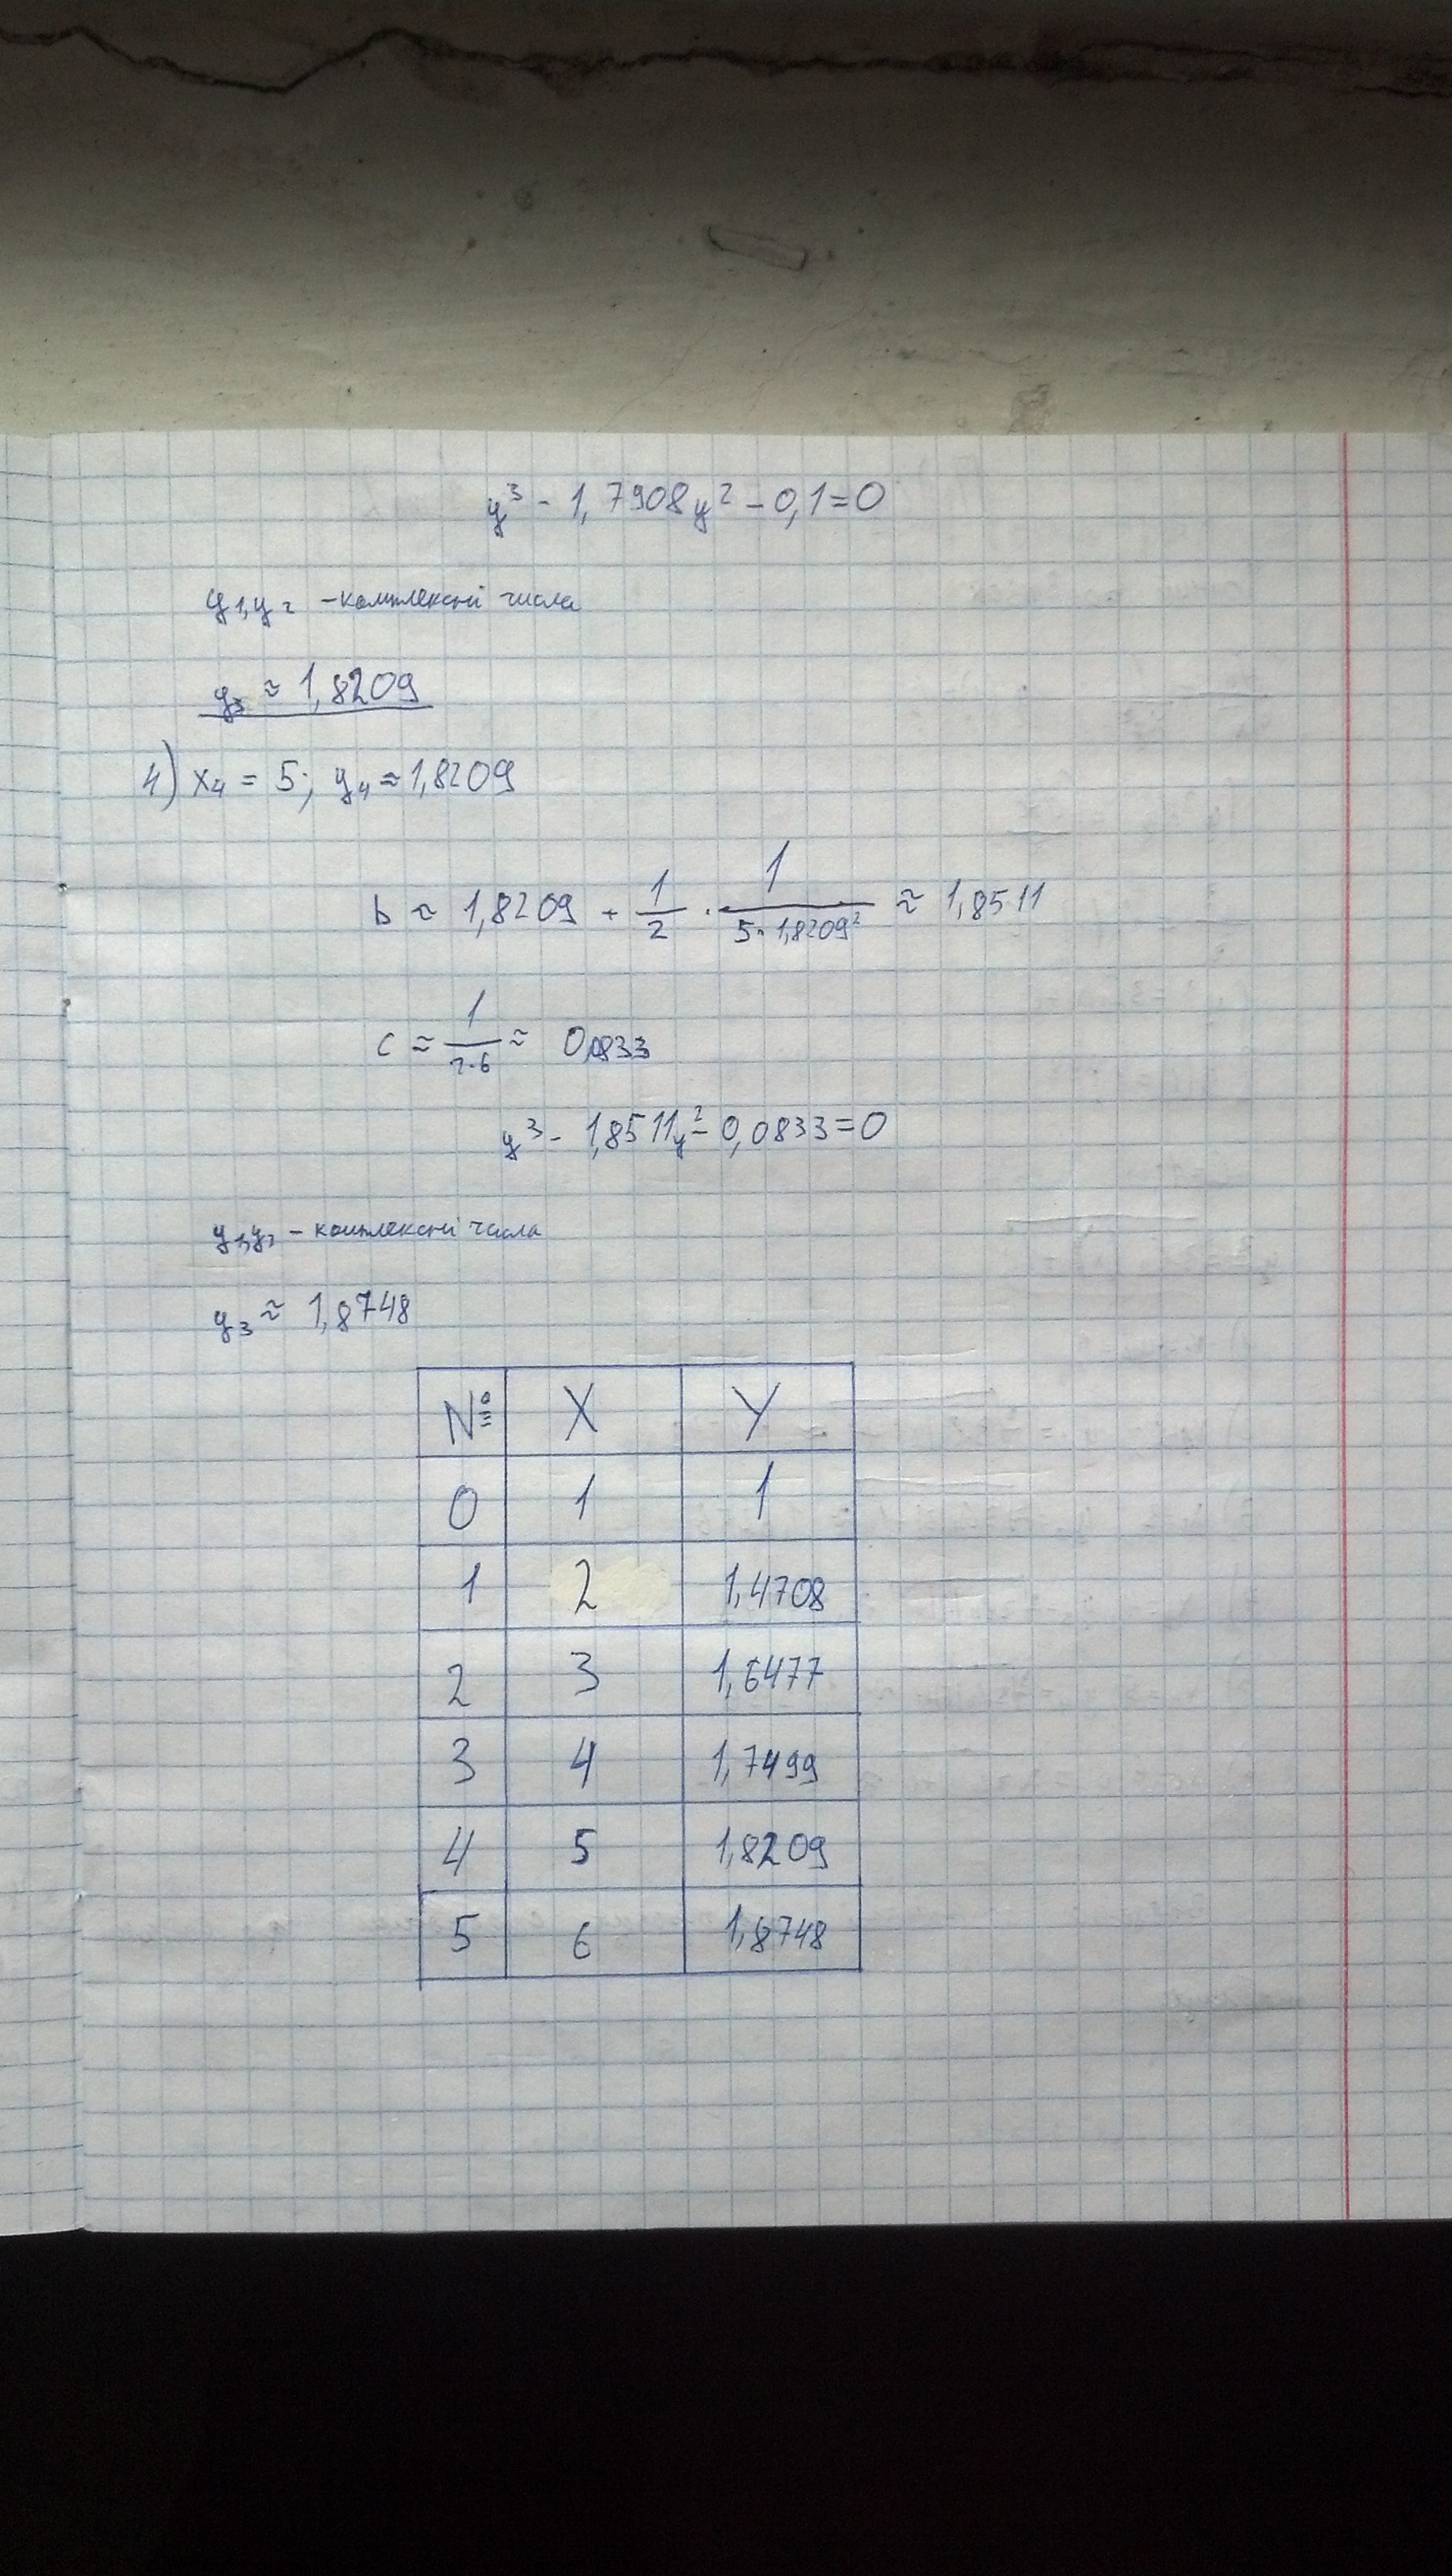 y³ - 1,7908y² - 0,1=0
y₁,y₂ - комплексні числа
y₃ ≈ 1,8209
4) x₄ = 5; y₄ ≈ 1,8209
b ≈ 1,8209 + 1/2 · 1/(5·1,8209²) ≈ 1,8511
c ≈ 1/(2·6) ≈ 0,0833
y³ - 1,8511y² - 0,0833=0
y₁,y₂ - комплексні числа
y₃ ≈ 1,8748
№ X Y
0 1 1
1 2 1,4708
2 3 1,6477
3 4 1,7499
4 5 1,8209
5 6 1,8748